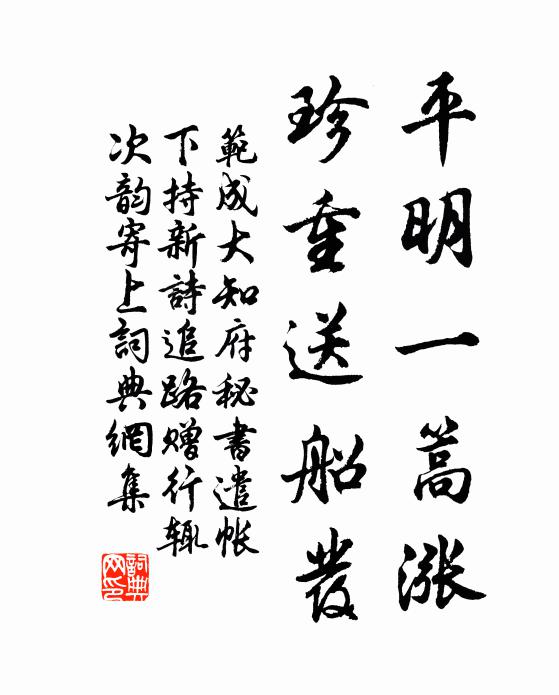 平明一篙漲
珍重送船發
範成大知府秘書遣帳
下持新詩追路贈行輒
次韵寄上詞典網集
詞典
网印